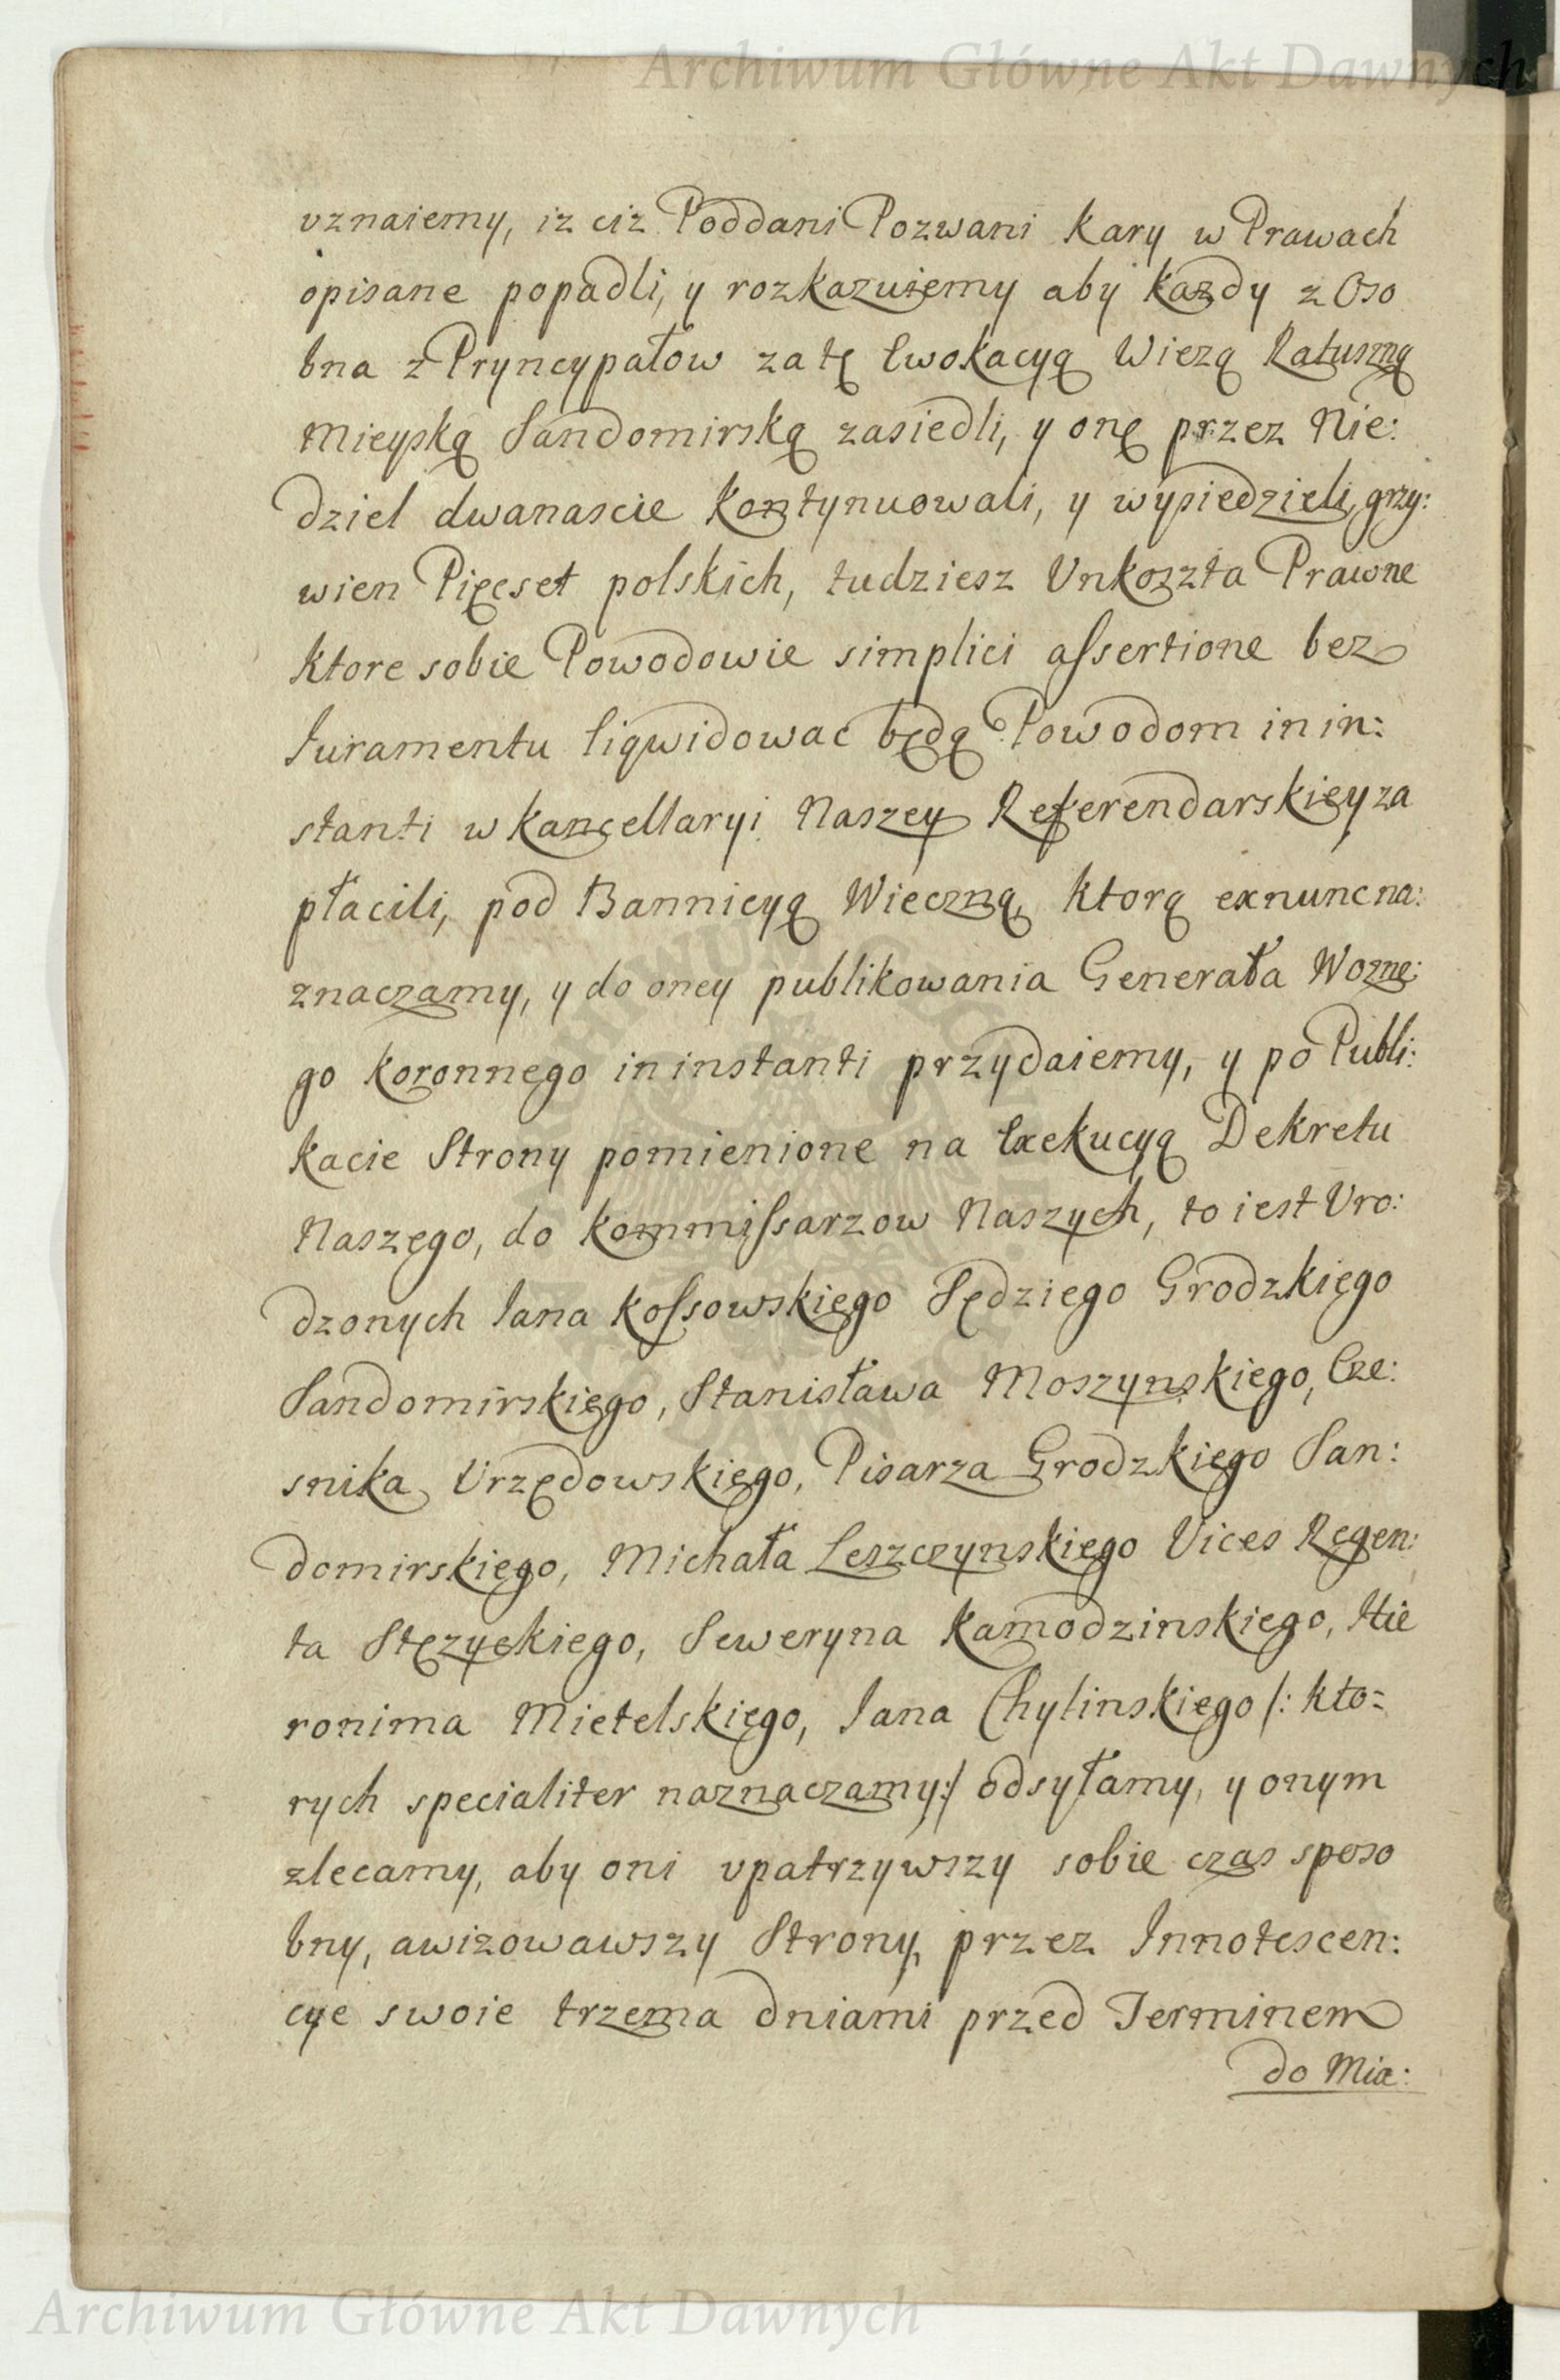 Archiwum Główne Akt Dawnych
vznaiemy, iz ciz Poddani Pozwani Kary w Prawach
opisane popadli, y rozkazuiemy aby Kazdy z Oso
bna z Pryncypałow za tę Ewokacyą Wiezą Ratuszną
Mieyską Sandomirską zasiedli, y onę przez Nie:
dziel dwanascie Kontynuowali, y wysiedzieli, grzy:
wien Pięcset polskich, tudziesz Vnkoszta Prawne
ktore sobie Powodowie simplici assertione bez
Iuramentu liqwidowac będą Powodom in in:
stanti w Kancellaryi Naszey Referendarskiey za
płacili, pod Bannicyą Wieczną, Ktorą exnunc na:
znaczamy, y do oney publikowania Generała Wozne:
go Koronnego in instanti przydaiemy, y po Publi:
kacie Strony pomienione na Exekucyą Dekretu
Naszego, do Kommissarzow Naszych, to iest Vro:
dzonych Iana Kossowskiego Sędziego Grodzkiego
Sandomirskiego, Stanisława Moszynskiego, Cze:
snika Vrzędowskiego, Pisarza Grodzkiego San:
domirskiego, Michała Leszczynskiego Vices Regen:
ta Stęzyckiego, Seweryna Kamodzinskiego, Hie
ronima Mietelskiego, Iana Chylinskiego /: kto=
rych specialiter naznaczamy:/ odsyłamy, y onym
zlecamy, aby oni vpatrzywszy sobie czas sposo
bny, awizowawszy Strony, przez Innotescen:
cye swoie trzema dniami przed Terminem
do Mia:
Archiwum Główne Akt Dawnych